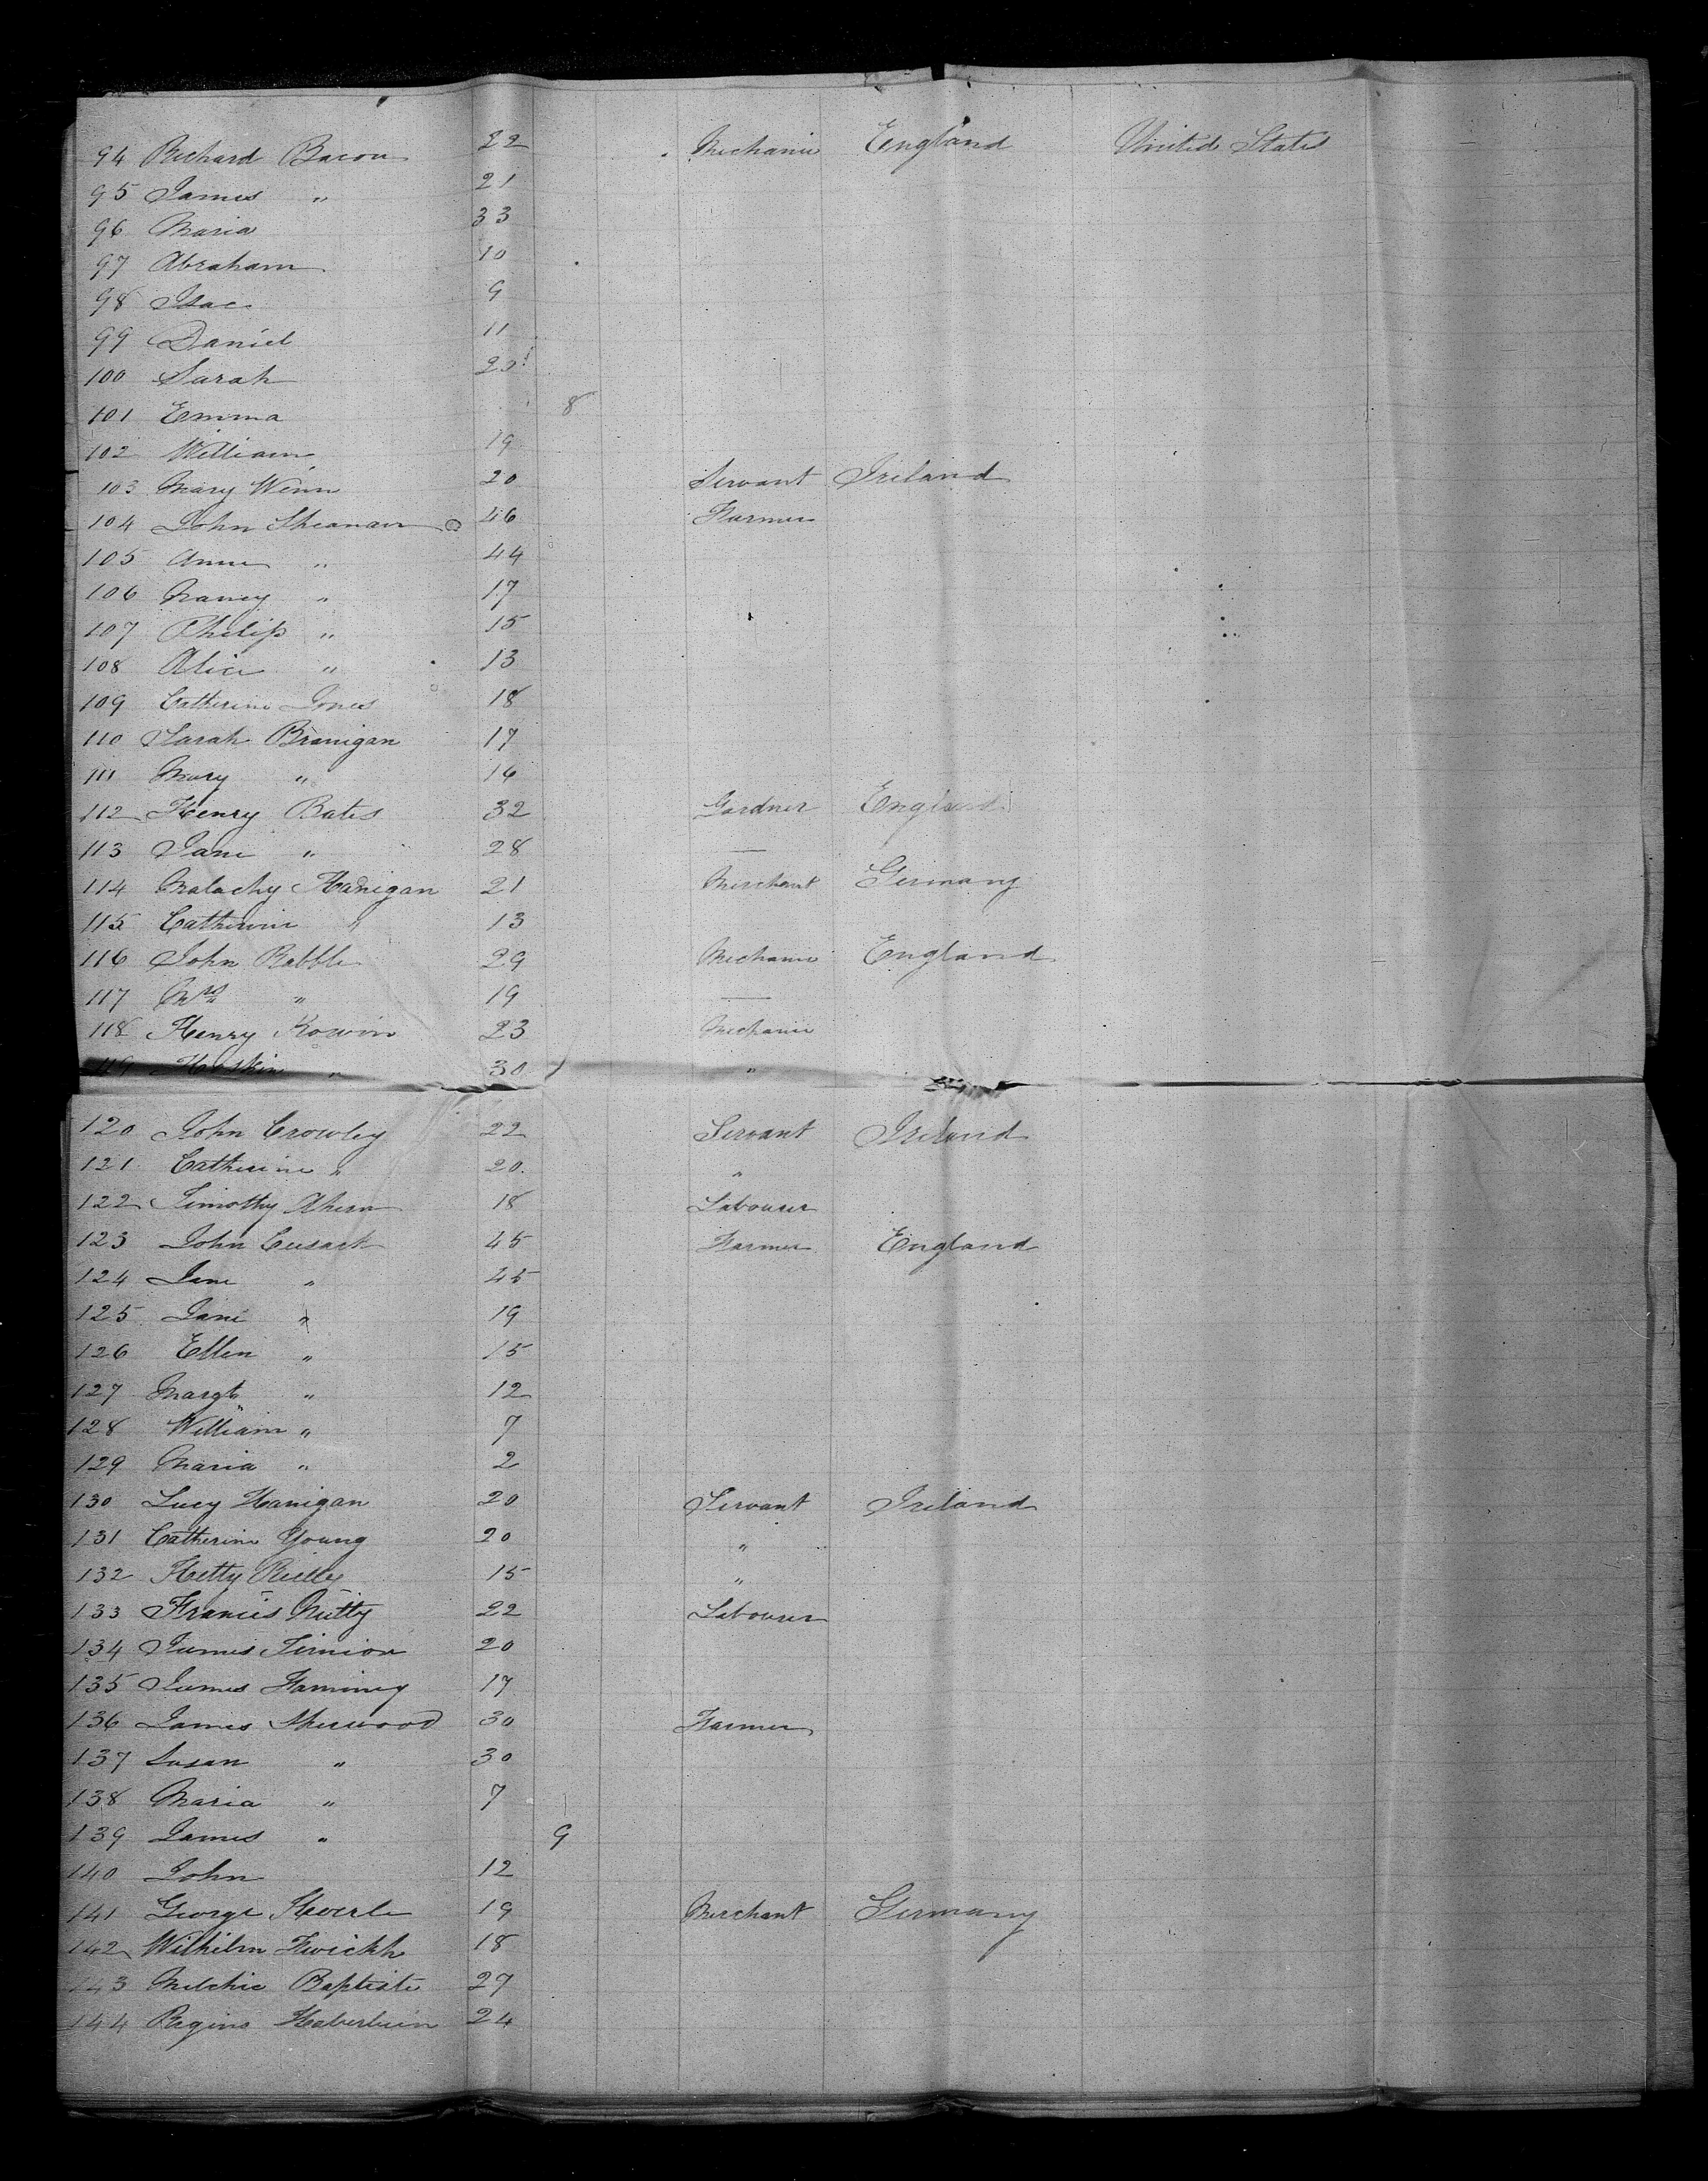 94 Richard Bacon 22 Mechanic England United States
95 James " 21
96 Maria 33
97 Abraham 10
98 Isac 9
99 Daniel 11
100 Sarah 20
101 Emma 8
102 William 19
103 Mary Winn 20 Servant Ireland
104 John Sheanan 46 Farmer
105 Anne " 44
106 Nancy " 17
107 Philip " 15
108 Alice " 13
109 Catherine Jones 18
110 Sarah Branigan 17
111 Mary " 16
112 Henry Bates 32 Gardner England
113 Jane " 28 —
114 Malachy Hanigan 21 Merchant Germany
115 Catherine " 13
116 John Rabble 29 Mechanic England
117 Mrs " 19 —
118 Henry Rowin 23 Mechanic
119 " 30 "
120 John Crowley 22 Servant Ireland
121 Catherine " 20 "
122 Timothy Ahern 18 Labourer
123 John Cusack 45 Farmer England
124 Jane " 45
125 Jane " 19
126 Ellen " 15
127 Margt " 12
128 William " 7
129 Maria " 2
130 Lucy Hanigan 20 Servant Ireland
131 Catherine Young 20 "
132 Hetty Reilly 15 "
133 Francis Nutty 22 Labourer
134 James 20
135 James 17
136 James Sherwood 30 Farmer
137 Susan " 30
138 Maria " 7
139 James " 9
140 John 12
141 George 19 Merchant Germany
142 Wilhelm 18
143 Baptiste 27
144 24